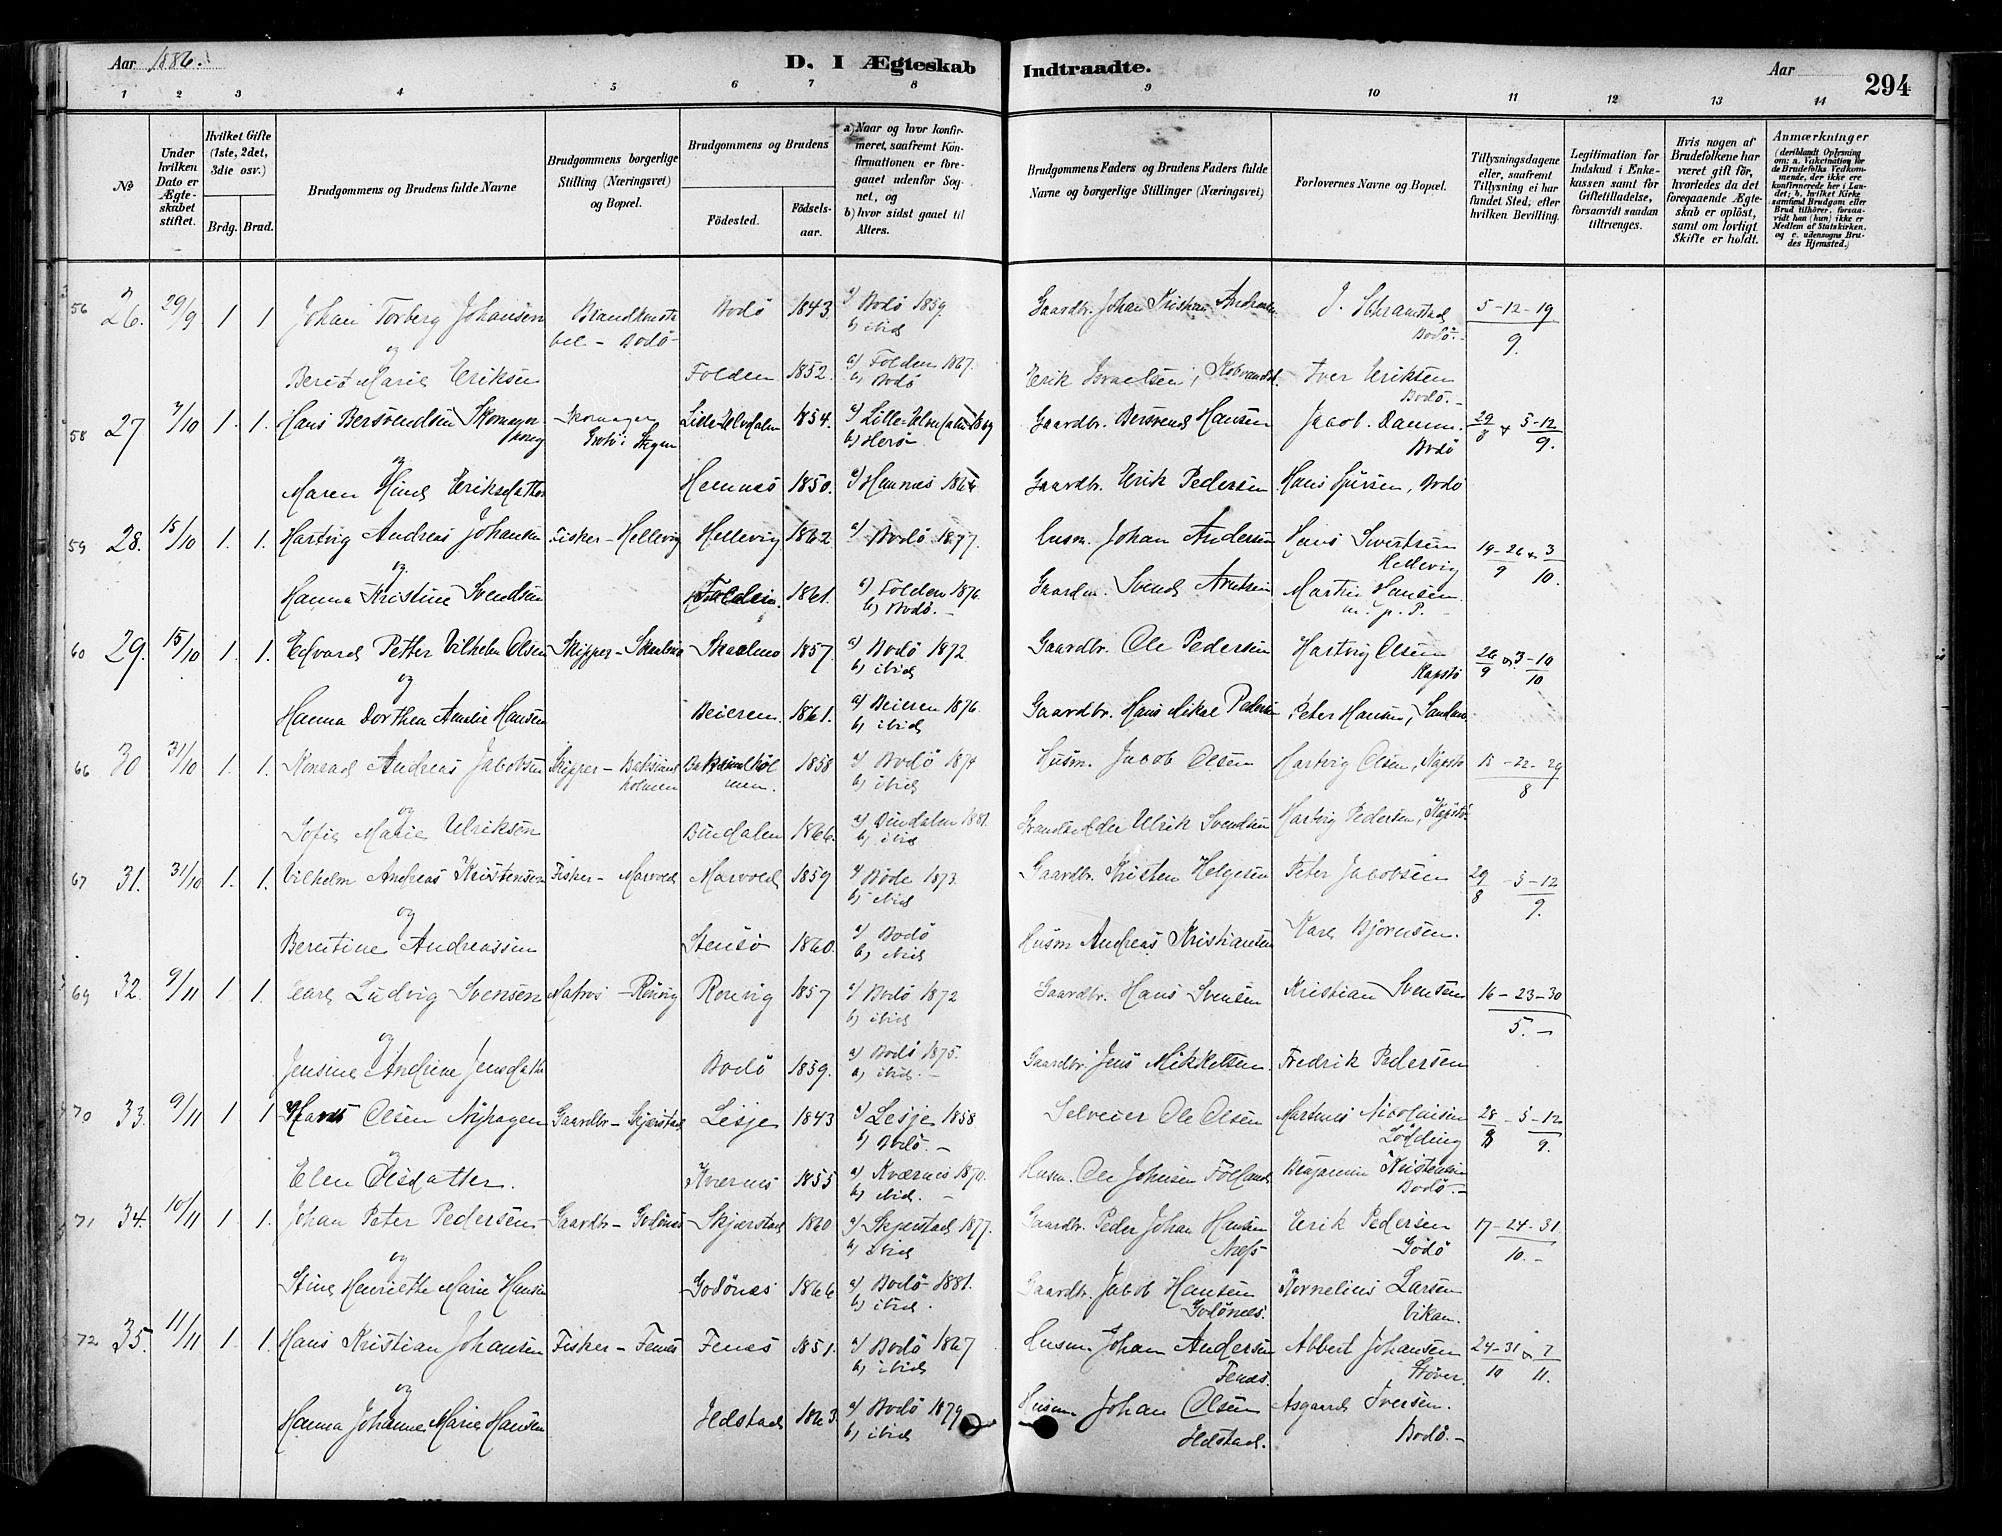 Aar 1886.
D. I Ægteskab Indtraadte.
Aar
294
1 2 3 4 5 6 7 8 9 10 11 12 13 14
No
Under hvilken Dato er Ægteskabet stiftet.
Hvilket Gifte (1ste, 2det, 3die osv.)
Brdg. Brud.
Brudgommens og Brudens fulde Navne
Brudgommens borgerlige Stilling (Næringsvei) og Bopæl.
Brudgommens og Brudens
Födested.
Födselsaar.
a) Naar og hvor konfirmeret, saafremt Konfirmationen er foregaaet udenfor Sognet, og
b) hvor sidst gaaet til Alters.
Brudgommens Faders og Brudens Faders fulde Navne og borgerlige Stillinger (Næringsvei)
Forlovernes Navne og Bopæl.
Tillysningsdagene eller, saafremt Tillysning ei har fundet Sted, efter hvilken Bevilling.
Legitimation for Indskud i Enkekassen samt for Giftetilladelse, forsaavidt saadan tiltrænges.
Hvis nogen af Brudefolkene har været gift før, hvorledes da det foregaaende Ægteskab er oplöst, samt om lovligt Skifte er holdt.
Anmærkninger
(deriblandt Oplysning om: a. Vakcination for de Brudefolks Vedkommende, der ikke ere konfirmerede her i Landet; b. hvilket Kirkesamfund Brudgom eller Brud tilhörer, forsaavidt han (hun) ikke er Medlem af Statskirken, og c. udensogns Brudes Hjemsted.)
56 26. 29/9 1 1 Johan Torberg Johansen Brandkonstabel - Bodö - Bodö 1843. a) Bodö 1859. b) ibid Gaardbr. Johan Kristian Andersen J. Schramstad Bodö. - 5-12-19/9.
og
Berit Marie Eriksen Folden 1852. a) Folden 1867. b) Bodö Erik Israelsen, Iver Eriksen Bodö. -
58 27 7/10 1. 1. Hans Bersvendsen Skomager Skomager Grotö i Stegen Lille-Elvdalen 1854. a) Lille-Elvedalen 1869 b) Herö Gaardbr. Bersvend Hansen Jacob Damm. Bodö 29/8 & 5-12/9.
og
Maren Eriksdatter Hemnes 1850. a) Hemnes 1864 Gaardbr. Erik Pedersen Hans Jürsen, Bodö
59 28. 15/10 1. 1. Hartvig Andreas Johansen Fisker - Hellevig Hellevig 1862 a) Bodö 1877. Husm. Johan Andersen Hans Sivertsen Hellevig 19-26/9 & 3/10.
og
Hanna Kristine Svendsen Folden. 1861. a) Folden 1876 b) Bodö. - Gaardm. Svend Arntsen Martin Hansen m. p. P.
60 29. 15/10 1. 1. Edvard Petter Vilhelm Olsen Skipper - Skaalmo 1857. a) Bodö 1872. b) ibid Gaardbr. Ole Pedersen Hartvig Olsen Kapstö 26/9 & 3-10/10
og
Hanna Dorthea Amalie Hansen Beieren 1861. a) Beieren 1876. b) ibid Gaardbr. Hans Mikal Pedersen Peter Hansen,
66 30 31/10 1. 1. Konrad Andreas Jacobsen Skipper - Baksundholmen Baksundholmen. 1858 a) Bodö 1874 b) ibid Husm. Jacob Olsen Hartvig Olsen, Kapstö 15-22-29/8
og
Sofie Marie Ulriksen Bindalen 1866. a) Bindalen 1881. b) ibid Strandsidder Ulrik Svendsen Hartvig Pedersen, Kapstö
67 31. 31/10 1. 1. Vilhelm Andreas Kristensen Fisker - Marvold Marvold 1859 a) Bodö 1873. b) ibid Gaardbr. Kristen Helgesen Peter Jacobsen 29/8 - 5-12/9.
og
Berntine Andreassen Stensö 1860. a) Bodö b) ibid Husm. Andreas Kristiansen Karl Bjørnsen.
69 32. 9/11 1 1. Carl Ludvig Svensen Matros - Rönvig Rönvig 1857 a) Bodö 1872 b) ibid Gaardbr. Hans Svensen Kristian Svensen 16-23-30/5. -
og
Jensine Andrine Jensdatter Bodö 1859. a) Bodö 1875. - b) ibid. - Gaardbr. Jens Mikkelsen. Fredrik Pedersen
70 33. 9/11 1 1 Hans Olsen Nyhagen Gaardbr - Skjerstad Lesje 1843 a) Lesje 1858 b) Bodö. - Selveier Ole Olsen Martinus Nicolaisen Lödding 28/8 - 5-12/9.
og
Elen Olsdatter. Kværnes 1855 a) Kværnes 1870. b) ibid. - Husm. Ole Johnsen Folland Benjamin Kristensen Bodö. -
71 34. 10/11 1 1. Johan Peter Pedersen Gaardbr - Godönes Skjerstad 1860 a) Skjerstad 1877. b) ibid Gaardbr. Peder Johan Hansen Næss Erik Pedersen Godö 17-24-31/10. -
og
Stine Henriette Marie Hansen Godönes 1866 a) Bodö 1881. b) ibid. Gaardbr. Jacob Hansen Godönes. Kornelius Larsen Vikan.
72 35. 11/11 1 1. Hans Kristian Johansen Fisker - Fenes Fenes 1851. a) Bodö 1867 b) ibid Husm. Johan Andersen Fenes. Albert Johansen Støver. 24-31/10 & 7/11.
og
Hanna Johanne Marie Hansen Ildstad 1863. a) Bodö 1879 b) ibid Husm. Johan Olsen Ildstad. Asgaard Iversen. Bodö. -